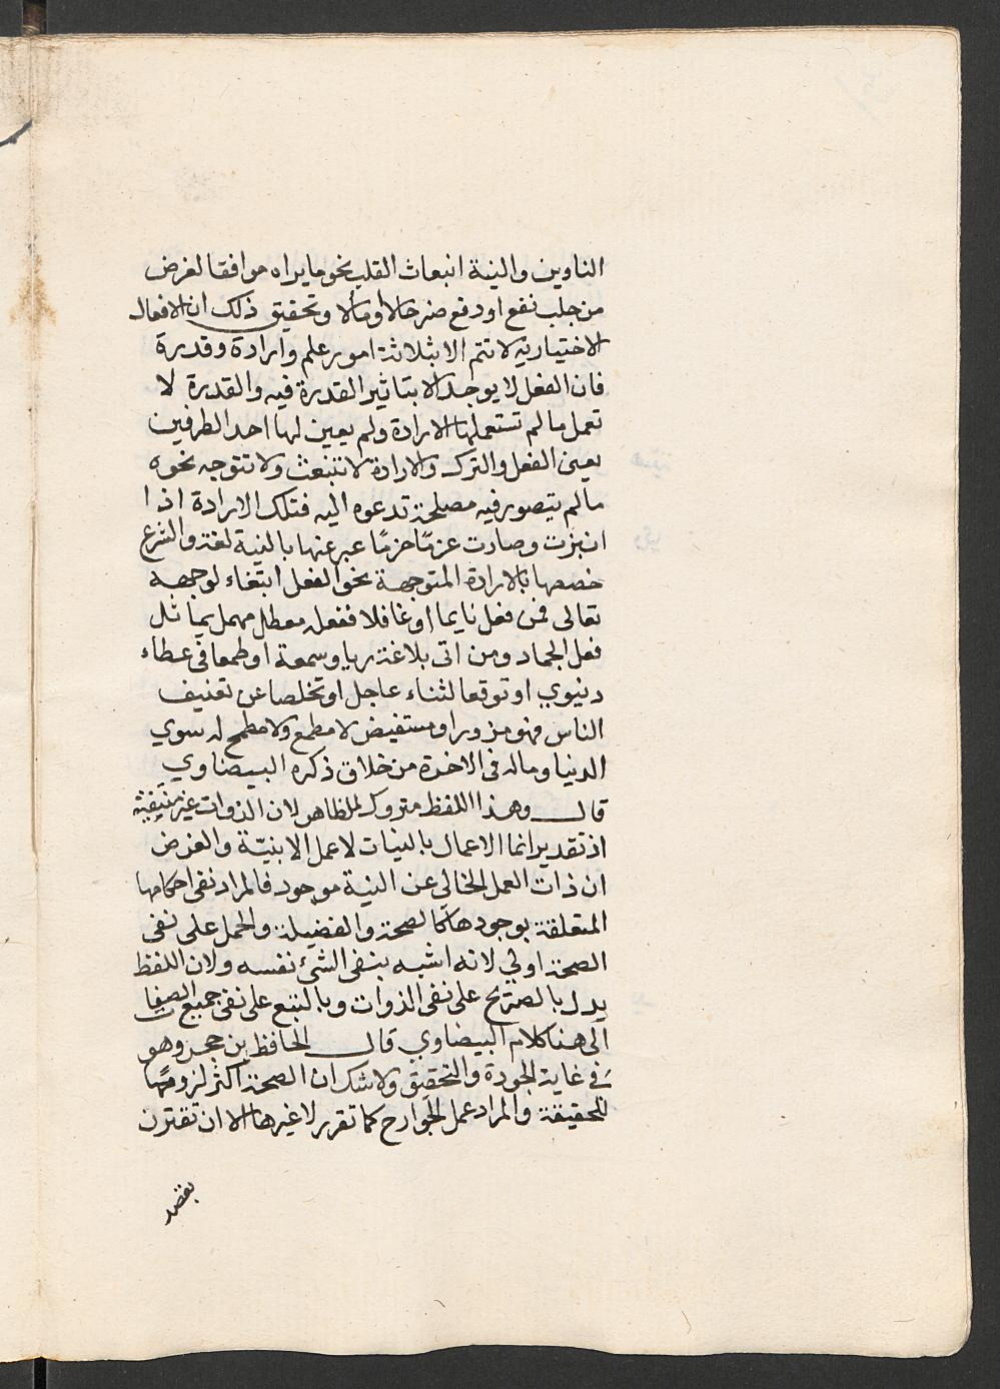 الناوين والنية انبعاث القلب نحو ما يراه موافقا لغرض
من جلب نفع او دفع ضر حالا او مآلا وتحقيق ذلك ان الافعال
الاختيارية لا تتم الا بثلاثة امور علم وارادة وقدرة
فان الفعل لا يوجد الا بتاثير القدرة فيه والقدرة لا
تعمل ما لم تستعملها الارادة ولم يعين لها احد الطرفين
يعين الفعل والترك والارادة لا تنبعث ولا تتوجه نحوه
ما لم يتصور فيه مصلحة تدعوه اليه فتلك الارادة اذا
انبزت وصارت عزمًا حزمًا عبر عنها بالنية لغة والشرع
خصصها بالارادة المتوجهة نحو الفعل ابتغاء لوجهه
تعالى فمن فعل نايما او غافلا ففعله معطل مهمل يماثل
فعل الجماد ومن اتى بلاغة ريا وسمعة او طمعا في عطاء
دنيوي او توقعا لثناء عاجل او تخلصا عن تعنيف
الناس فهو مزور او مستفيض لا مطمع ولا مطمح له سوي
الدنيا وماله في الاخرة من خلاق ذكره البيضاوي
قال وهذا اللفظ متروك لملظاهر لان الذوات غير منتفية
اذ تقدير انما الاعمال بالنيات لا عمل الا بنيّة والغرض
ان ذات العمل الخالي عن النية موجود فالمراد نفى احكامها
المتعلقة بوجودها كالصحة والفضيلة والحمل على نفى
الصحة اولي لانه اشبه بنفى الشئ نفسه ولان اللفظ
يدل بالصريح على نفى الذوات وبالتبع على نفى جميع الصفات
الى هنا كلام البيضاوي قال الحافظ بن حجر وهو
في غاية الجودة والتحقيق ولا شك ان الصحة اكثر لزومًا
للحقيقة والمراد عمل الجوارح كما تقرر لا غيرها الا ان تقترن
بقصد